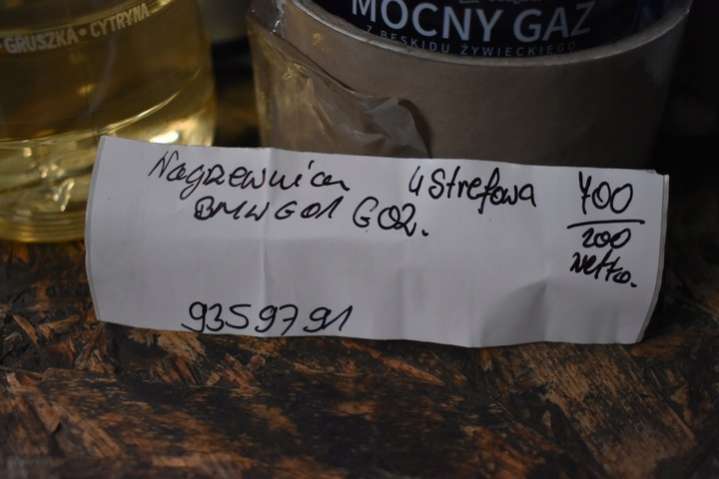 GRUSZKA • CYTRYNA
MOCNY GAZ
Z BESKIDU ŻYWIECKIEGO
Nagrzewnica 4 Strefowa 700
BMW G01 G02. 200
Netto.
9359791